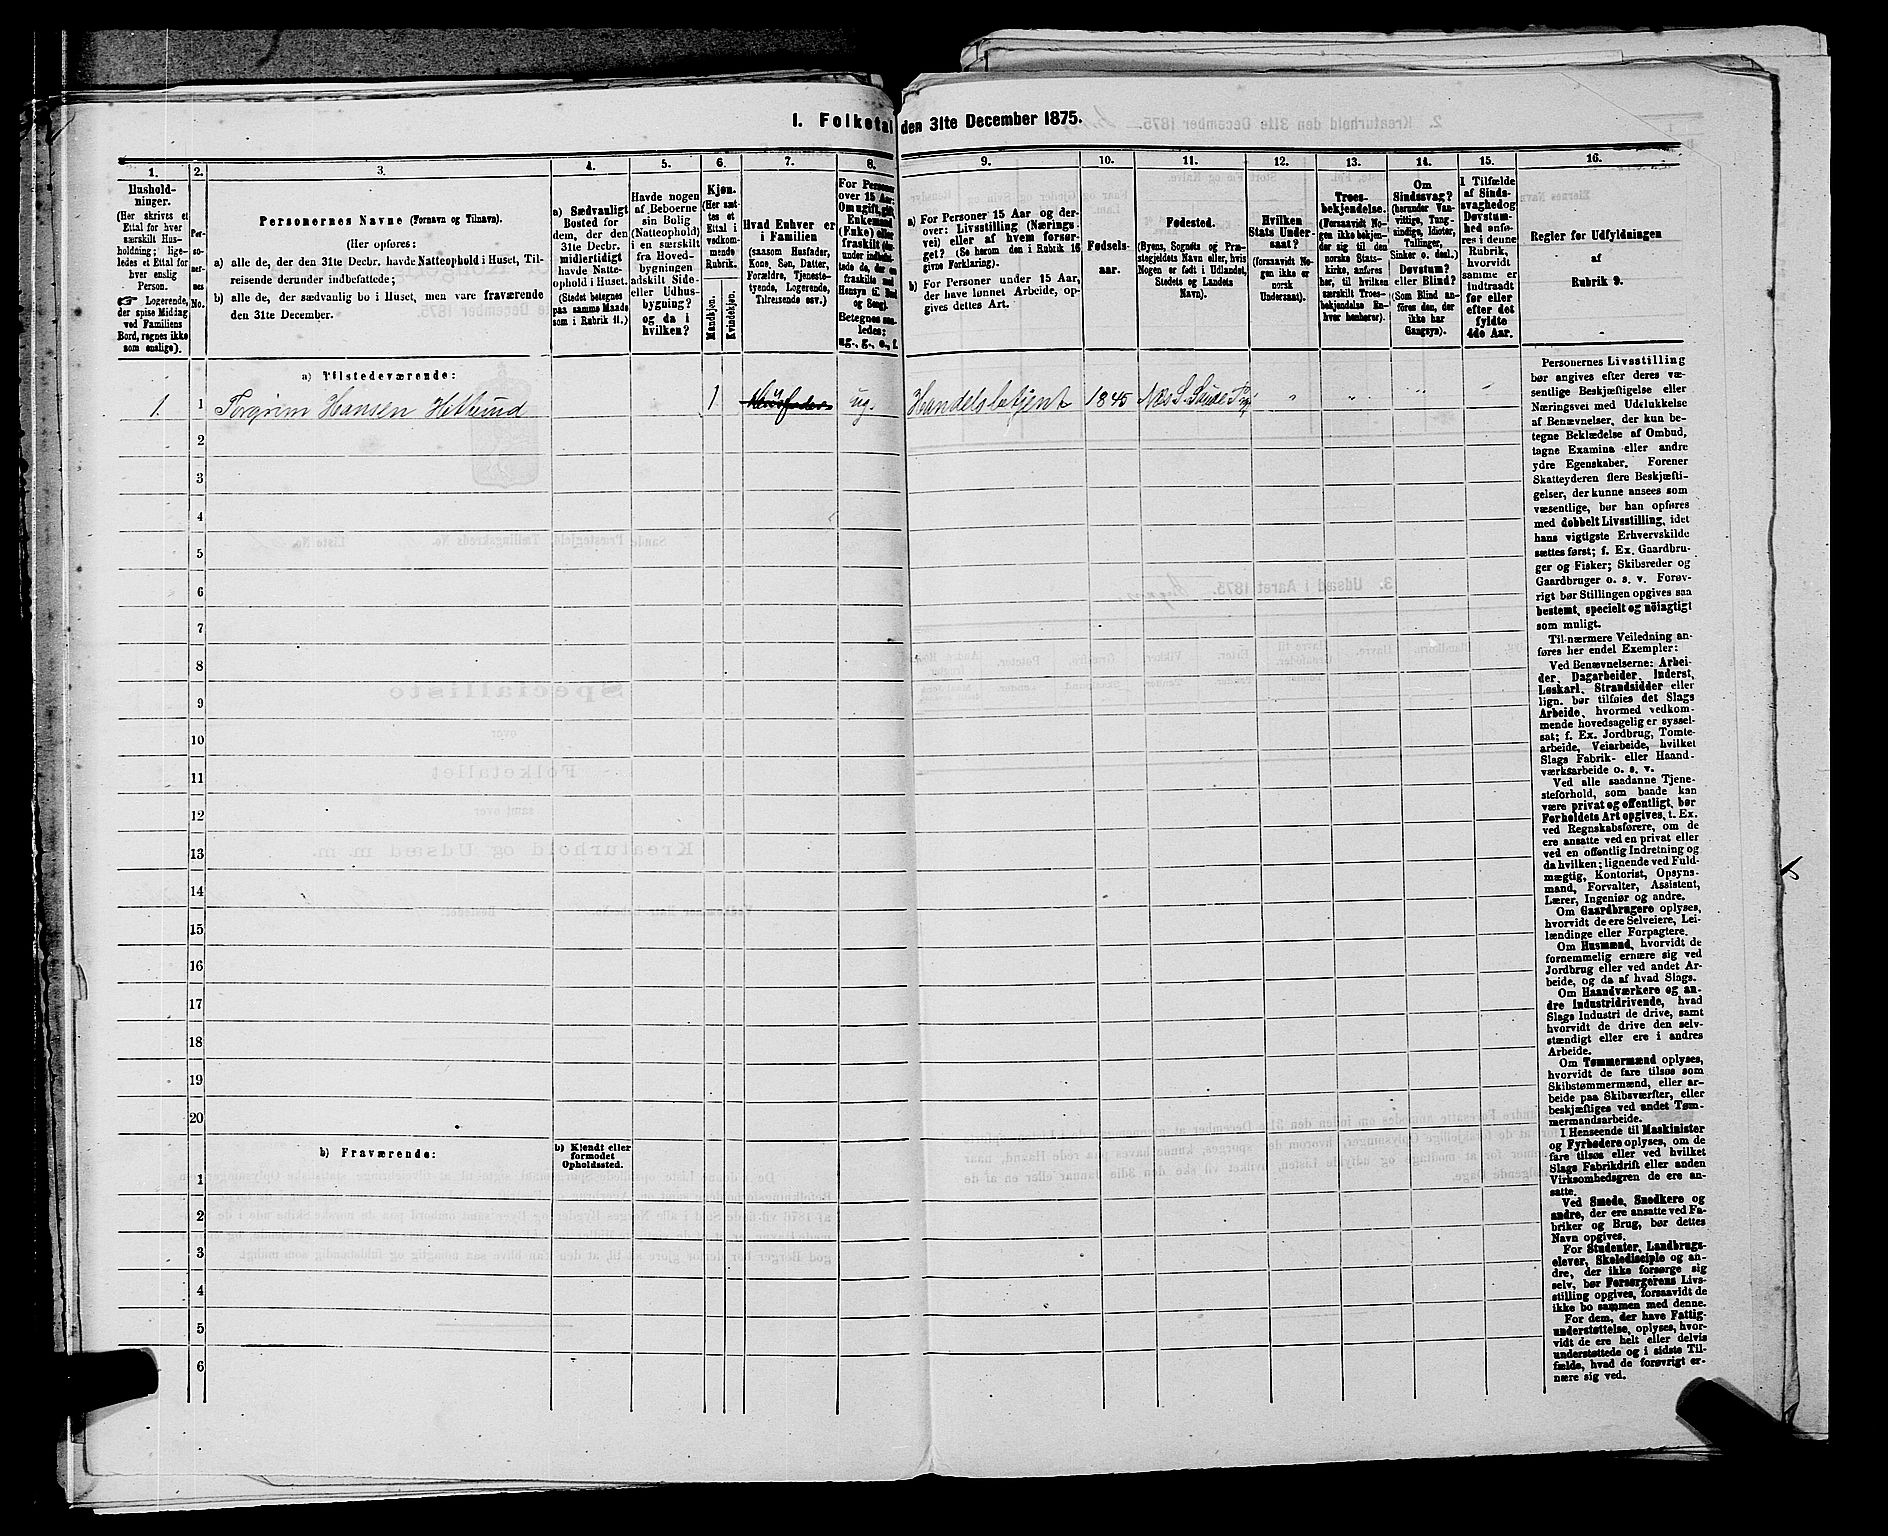 I. Folketal den 31te December 1875.
1. 2. 3. 4. 5. 6. 7. 8. 9. 10. 11. 12. 13. 14. 15. 16.
Hushold-
ninger.
(Her skrives et
Ettal for hver
særskilt Hus-
holdning; lige-
ledes et Ettal for
hver enslig
Person.
☞ Logerende,
der spise Middag
ved Familiens
Bord, regnes ikke
som enslige).
Per-
so-
ner-
nes
No.
Personernes Navne (Fornavn og Tilnavn).
(Her opføres:
a) alle de, der den 31te Decbr. havde Natteophold i Huset, Til-
reisende derunder indbefattede;
b) alle de, der sædvanlig bo i Huset, men vare fraværende
den 31te December.
a) Sædvanligt
Bosted for
dem, der den
31te Decbr.
midlertidigt
havde Natte-
ophold i Huset.
(Stedet betegnes
paa samme Maade
som i Rubrik 11.)
Havde nogen
af Beboerne
sin Bolig
(Natteophold)
i en særskilt
fra Hoved-
bygningen
adskilt Side-
eller Udhus-
bygning?
og da i
hvilken?
Kjøn.
(Her sæt-
tes et
Ettal i
vedkom-
mende
Rubrik.
Mandkjøn.
Kvindekjøn.
Hvad Enhver er
i Familien
(saasom Husfader,
Kone, Søn, Datter,
Forældre, Tjeneste-
tyende, Logerende,
Tilreisende osv.)
For Personer
over 15 Aar:
Om ugift, gift,
Enkemand
(Enke) eller
fraskilt
Betegnes saa-
ledes:
ug., g., e., f.
a) For Personer 15 Aar og der-
over: Livsstilling (Nærings-
vei) eller af hvem forsør-
get? (Se herom den i Rubrik 16
givne Forklaring).
b) For Personer under 15 Aar,
der have lønnet Arbeide, op-
gives dettes Art.
Fødsels-
aar.
Fødested.
(Byens, Sognets og Præ-
stegjeldets Navn eller, hvis
Nogen er født i Udlandet,
Stedets og Landets
Navn).
Hvilken
Stats Under-
saat?
(forsaavidt No-
gen ikke er
norsk
Undersaat).
Troes-
bekjendelse.
(Forsaavidt No-
gen ikke bekjen-
der sig til den
norske Stats-
kirke, anføres
her, til hvilken
særskilt Troes-
bekjendelse En-
hver henhører).
Om
Sindssvag?
(herunder Van-
vittige, Tung-
sindige, Idioter,
Tullinger,
Sinker o. desl.)
Døvstum?
eller Blind?
(Som Blind an-
føres den, der
ikke har
Gangsyn).
I Tilfælde
af Sinds-
svaghed og
Døvstum-
hed anfø-
res i denne
Rubrik,
hvorvidt
samme er
indtraadt
før eller
efter det
fyldte
4de Aar.
Regler før Udfyldningen
af
Rubrik 9.
a) Tilstedeværende:
1. 1 Torgrim Hansen Hetlund 1 Husfader ug. Handelsbetjent 1845 " " " "
2
3
4
5
6
7
8
9
10
11
12
13
14
15
16
17
18
19
20
b) Fraværende:
b) Kjendt eller
formodet
Opholdssted.
1
2
3
4
5
6
Personernes Livsstilling
bør angives efter deres væ-
sentlige Beskjæftigelse eller
Næringsvei med Udelukkelse
af Benævnelser, der kun be-
tegne Beklædelse af Ombud,
tagne Examina eller andre
ydre Egenskaber. Forener
Skatteyderen flere Beskjæfti-
gelser, der kunne ansees som
væsentlige, bør han opføres
med dobbelt Livsstilling, idet
hans vigtigste Erhvervskilde
sættes først; f. Ex. Gaardbru-
ger og Fisker; Skibsreder og
Gaardbruger o. s. v. Forøv-
rigt bør Stillingen opgives saa
bestemt, specielt og nöiagtigt
som muligt.
Til nærmere Veiledning an-
føres her endel Exempler:
Ved Benævnelserne: Arbei-
der, Dagarbeider, Inderst,
Løskarl, Strandsidder eller
lign. bør tilføies det Slags
Arbeide, hvormed vedkom-
mende hovedsagelig er syssel-
sat; f. Ex. Jordbrug, Tomte-
arbeide, Veiarbeide, hvilket
Slags Fabrik- eller Haand-
værksarbeide o. s. v.
Ved alle saadanne Tjene-
steforhold, som baade kan
være privat og offentligt, bør
Forholdets Art opgives, t. Ex.
ved Regnskabsførere, om de
ere ansatte ved en privat eller
ved en offentlig Indretning og
da hvilken; lignende ved Fuld-
mægtig, Kontorist, Opsyns-
mand, Forvalter, Assistent,
Lærer, Ingeniør og andre.
Om Gaardbrugere oplyses,
hvorvidt de ere Selveiere, Lei-
lændinge eller Forpagtere.
Om Husmænd, hvorvidt de
fornemmelig ernære sig ved
Jordbrug eller ved andet Ar-
beide, og da af hvad Slags.
Om Haandværkere og an-
dre Industridrivende, hvad
Slags Industri de drive, samt
hvorvidt de drive den selv-
stændigt eller ere i andres
Arbeide.
Om Tømmermænd oplyses,
hvorvidt de fare tilsøs som
Skibstømmermænd, eller ar-
beide paa Skibsværfter, eller
beskjæftiges ved andet Tøm-
mermandsarbeide.
I Henseende til Maskinister
og Fyrbødere oplyses, om de
fare tilsøs eller ved hvilket
Slags Fabrikdrift eller anden
Virksomhedsgren de ere an-
satte.
Ved Smede, Snedkere og
andre, der ere ansatte ved Fa-
briker og Brug, bør dettes
Navn opgives.
For Studenter, Landbrugs-
elever, Skoledisciple og an-
dre, der ikke forsørge sig
selv, bør Forsørgerens Livs-
stilling opgives, forsaavidt de
ikke bo sammen med denne.
For dem, der have Fattig-
understøttelse, oplyses, hvor-
vidt de ere helt eller delvis
understøttede og i sidste Til-
fælde, hvad de forøvrigt er-
nære sig ved.